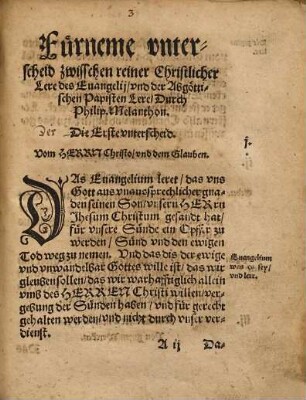 3
Fürneme vnter-
scheid zwisschen reiner Christlicher
Lere des Euangelij/ vnd der Abgötti-
schen Papisten Lere/ Durch
Philip. Melanthon.
Der Die Erste vnterscheid.
Vom HERRN Christo/ vnd dem Glauben.
DAs Euangelium leret/ das vns
Gott aus vnaussprechlicher gna-
den seinen Son/ vnsern HErrn
Jhesum Christum gesandt hat/
für vnsere Sünde ein Opffer zu
werden/ Sünd vnd den ewigen
Tod weg zu nemen. Vnd das dis der ewige
vnd vnwandelbar Gottes wille ist/ das wir
gleuben sollen/ das wir warhafftiglich allein
vmb des HERREN Christi willen/ ver-
gebung der Sünden haben/ vnd für gerecht
gehalten werden/ vnd nicht durch vnser ver-
dienst.
Euangelium
was es sey/
vnd lere.
A ij Da-